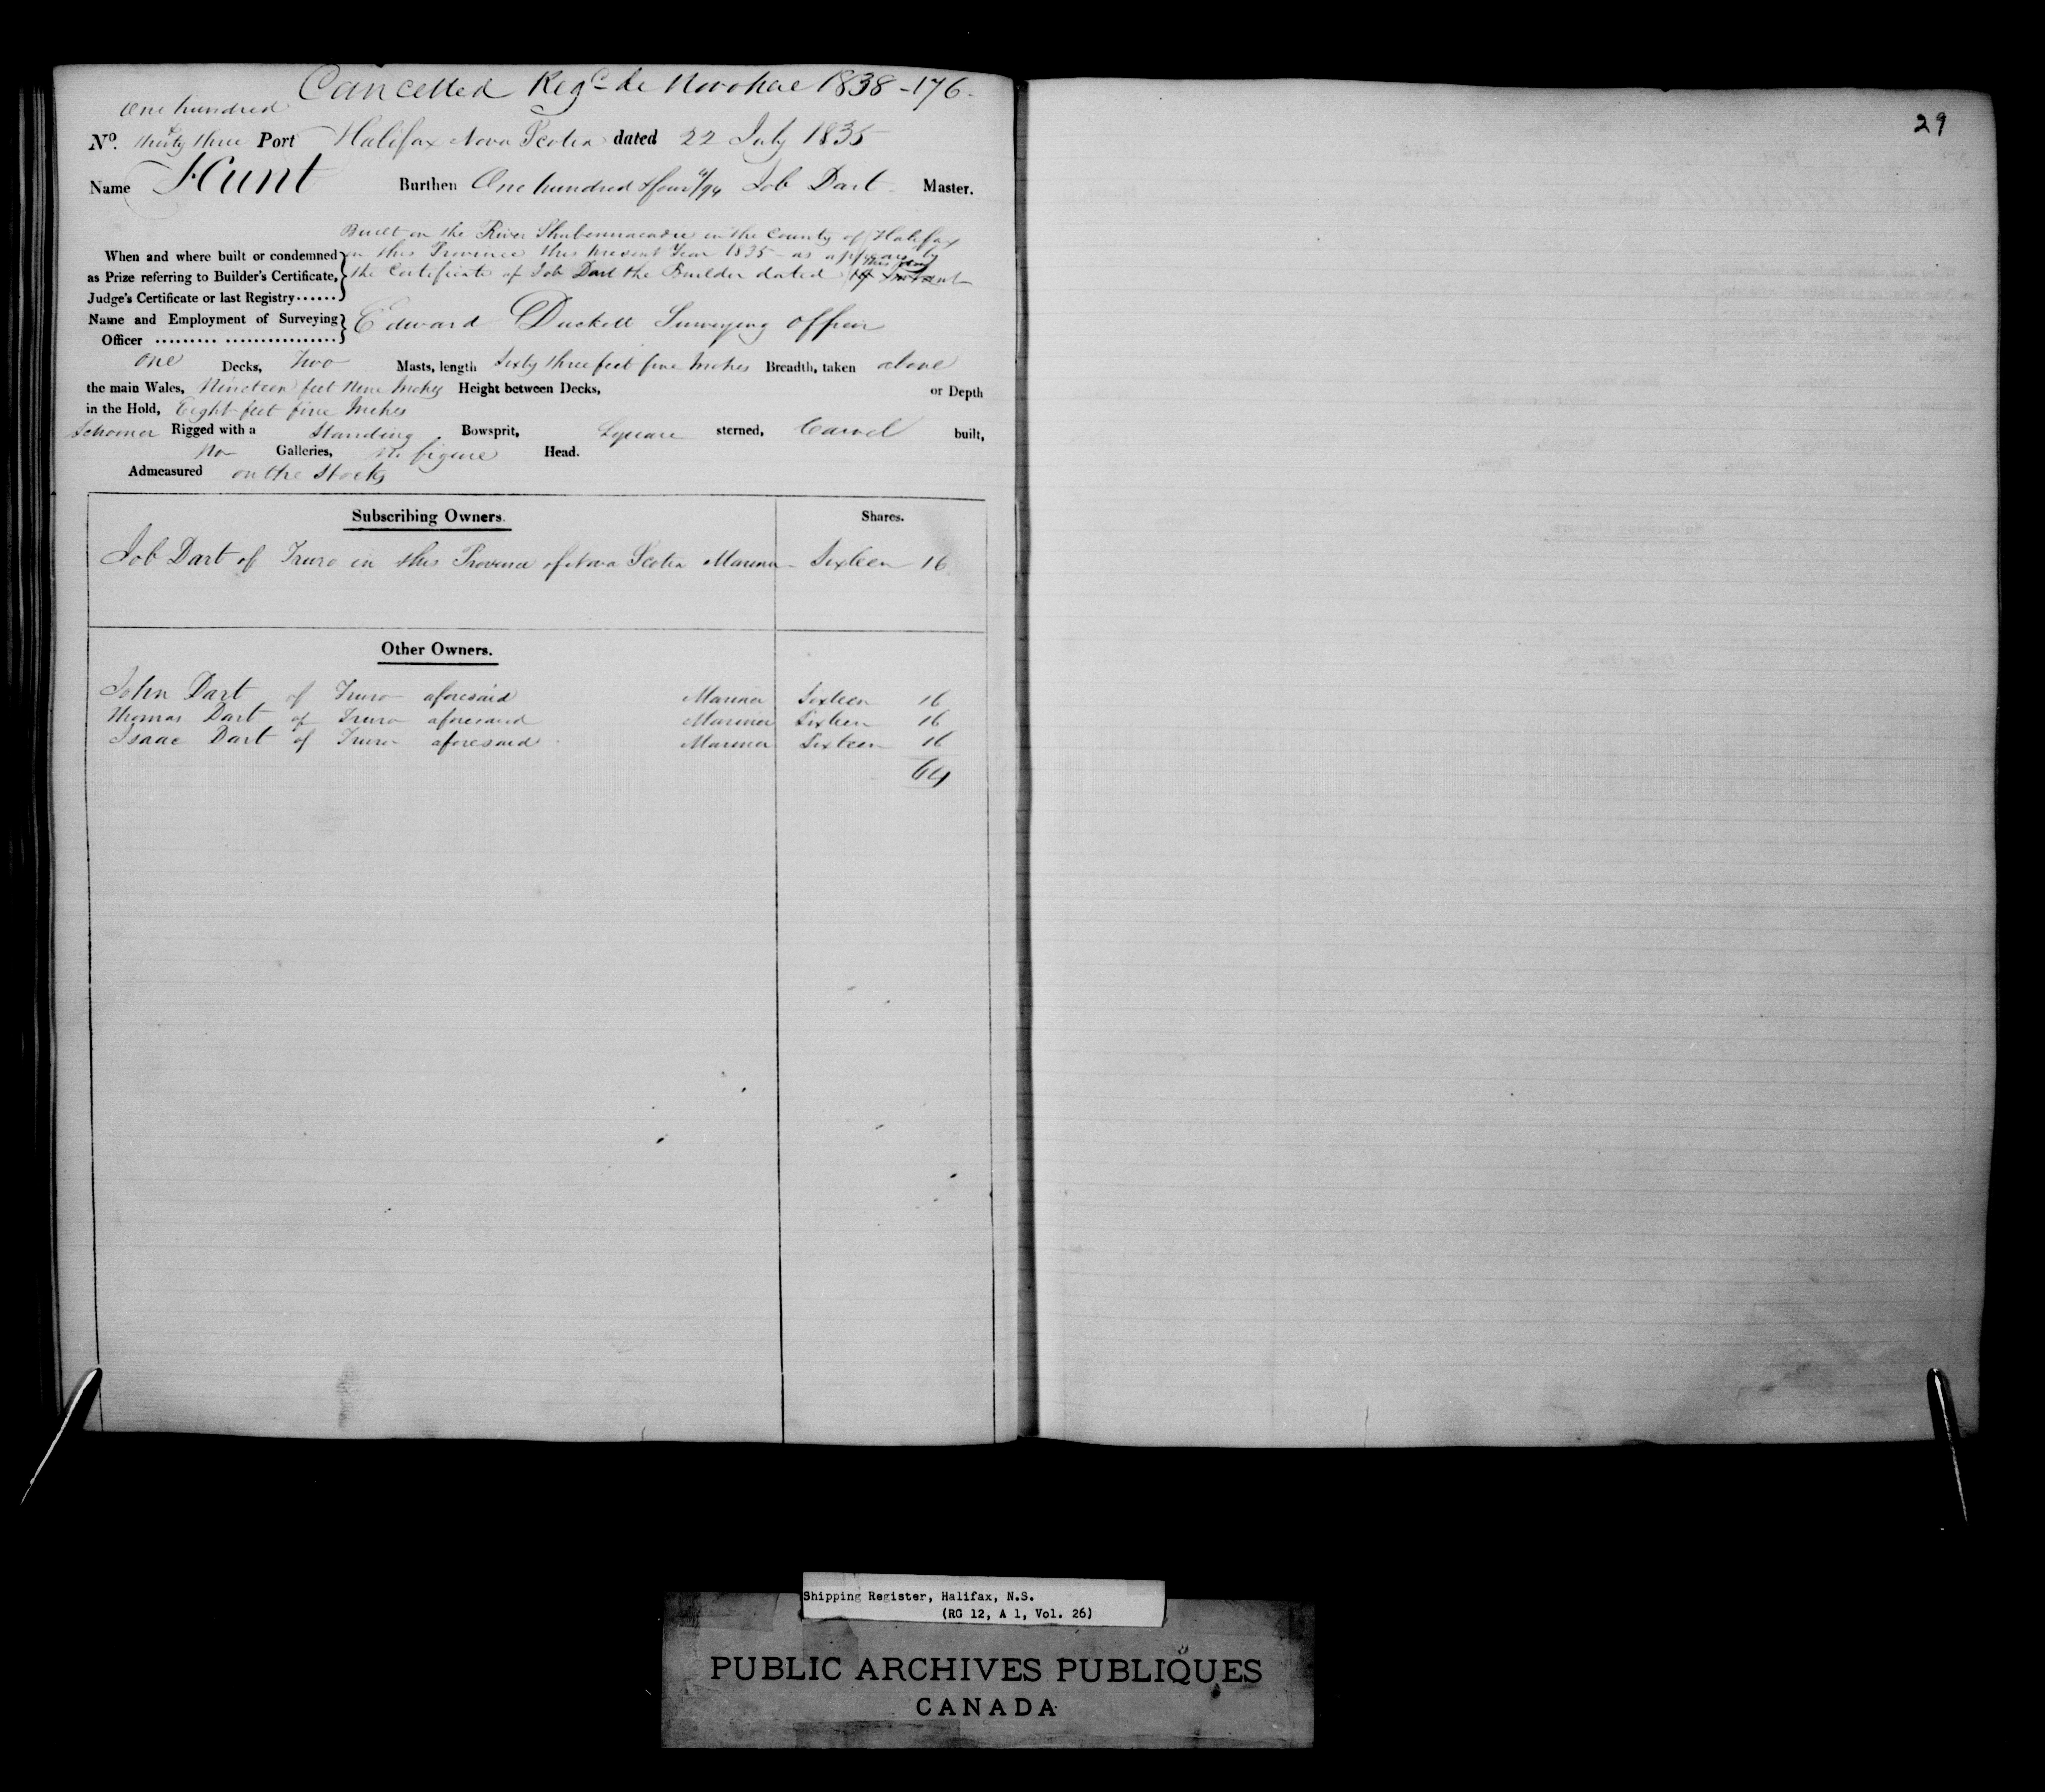 Cancelled Regd de Novo here 1838-176-
29
One hundred
No. & thirty three Port Halifax Nova Scotia dated 22 July 1835
Name Hunt Burthen One hundred & four /94 Job Dart Master.
Built on the River Shubennacadie in the County of Halifax
When and where built or condemned in this Province this present Year 1835 - as appears by
this day
as Prize referring to Builder's Certificate, the Certificate of Job Dart the Builder dated Instant
Judge's Certificate or last Registry......
Name and Employment of Surveying Edward Duckett Surveying Officer
Officer ......... ................
One Decks, Two Masts, length Sixty three feet five Inches Breadth, taken above
the main Wales, Nineteen feet Nine Inches Height between Decks, or Depth
in the Hold, Eight feet five Inches
Schooner Rigged with a Standing Bowsprit, Square sterned, Carvel built,
No Galleries, No figure Head.
Admeasured on the Stocks
Subscribing Owners. Shares.
Job Dart of Truro in this Province of Nova Scotia Mariner - Sixteen 16
Other Owners.
John Dart of Truro aforesaid Mariner Sixteen 16
Thomas Dart of Truro aforesaid Mariner Sixteen 16
Isaac Dart of Truro aforesaid Mariner Sixteen 16
64
Shipping Register, Halifax, N.S.
(RG 12, A 1, Vol. 26)
PUBLIC ARCHIVES PUBLIQUES
CANADA